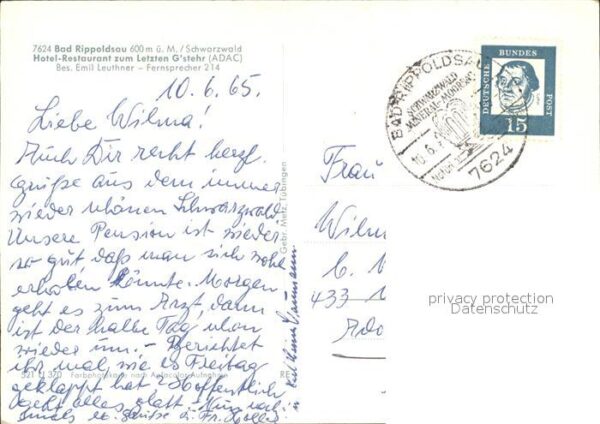 7624 Bad Rippoldsau 600 m ü. M. / Schwarzwald
Hotel-Restaurant zum Letzten G'stehr (ADAC)
Bes. Emil Leuthner – Fernsprecher 214
10.6.65.
Liebe Wilma!
Auch Dir recht herzl.
Grüße aus dem immer
wieder schönen Schwarzwald
Unsere Pension ist wieder
so gut daß man sich wohl
erholen könnte. Morgen
geht es zum Arzt, dann
ist der halbe Tag schon
wieder um. – Berichtet
ihr mal, wie es Freitag
geklappt hat? Hoffentlich
geht alles glatt – Nun noch-
mals Grüße
521 U 320 Farbenfotokarte nach Aufnahmen
Gebr. Metz, Tübingen
BAD RIPPOLDSAU
SCHWARZWALD
MINERAL-MOORBAD
10.6.
7624
DEUTSCHE BUNDES POST
15
Frau
Wilm
433
privacy protection
Datenschutz